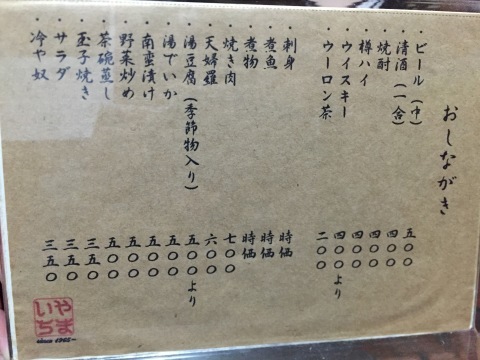 おしながき
・ビール(中) 五〇〇
・清酒(一合) 四〇〇
・焼酎 四〇〇
・樽ハイ 四〇〇
・ウイスキー 四〇〇より
・ウーロン茶 二〇〇
・刺身 時価
・煮魚 時価
・煮物 時価
・焼き肉 七〇〇
・天婦羅 六〇〇
・湯豆腐(季節物入り) 五〇〇より
・湯でいか 五〇〇
・南蛮漬け 五〇〇
・野菜炒め 五〇〇
・茶碗蒸し 五〇〇
・玉子焼き 三五〇
・サラダ 三五〇
・冷や奴 三五〇
やま
いち
since